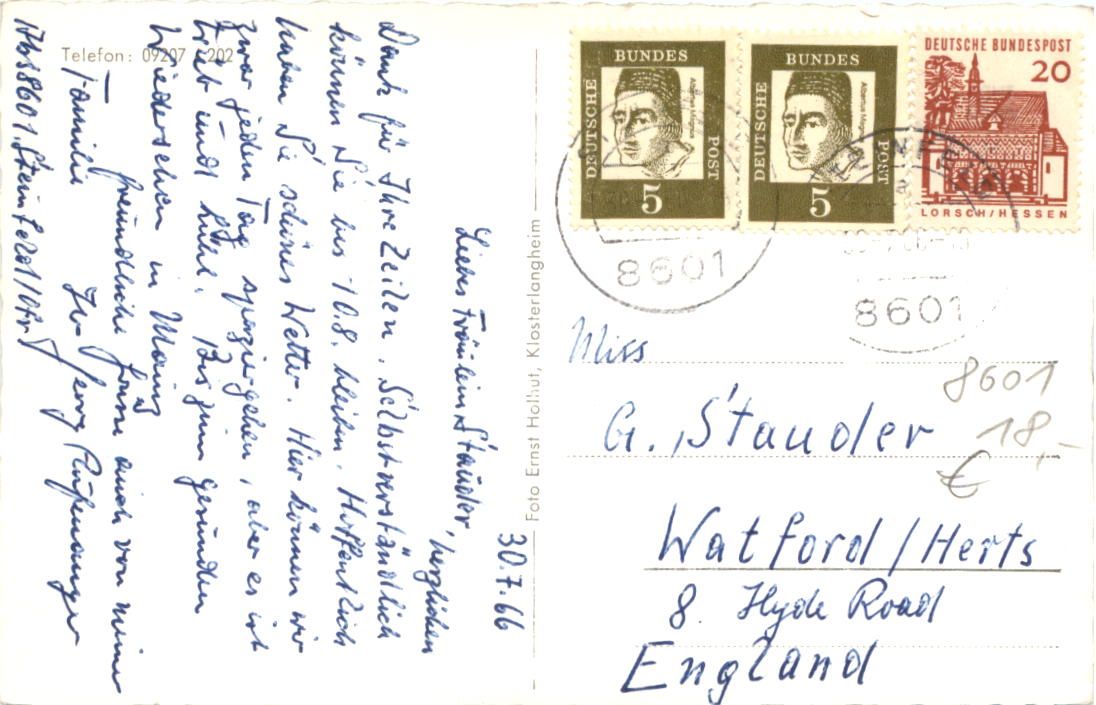 Telefon: 09207 / 202
30.7.66
Liebes Fräulein Stauder, herzlichen
Dank für Ihre Zeilen. Selbstverständlich
können Sie bis 10.8. bleiben. Hoffentlich
haben Sie schönes Wetter. Hier können wir
zwar jeden Tag spazierengehen, aber es ist
trüb und kühl. Bis zum gesunden
Wiedersehen in Mainz
freundliche Grüsse auch von meiner
Familie Ihr Georg
Abs 8601 Steinfeld/Ofr
Foto Ernst Holhut, Klosterlangheim
DEUTSCHE BUNDESPOST
5
DEUTSCHE BUNDESPOST
5
DEUTSCHE BUNDESPOST
20
LORSCH/HESSEN
8601
8601
Miss
G. Stauder
Watford/Herts
8. Hyde Road
England
8601
18,-
€